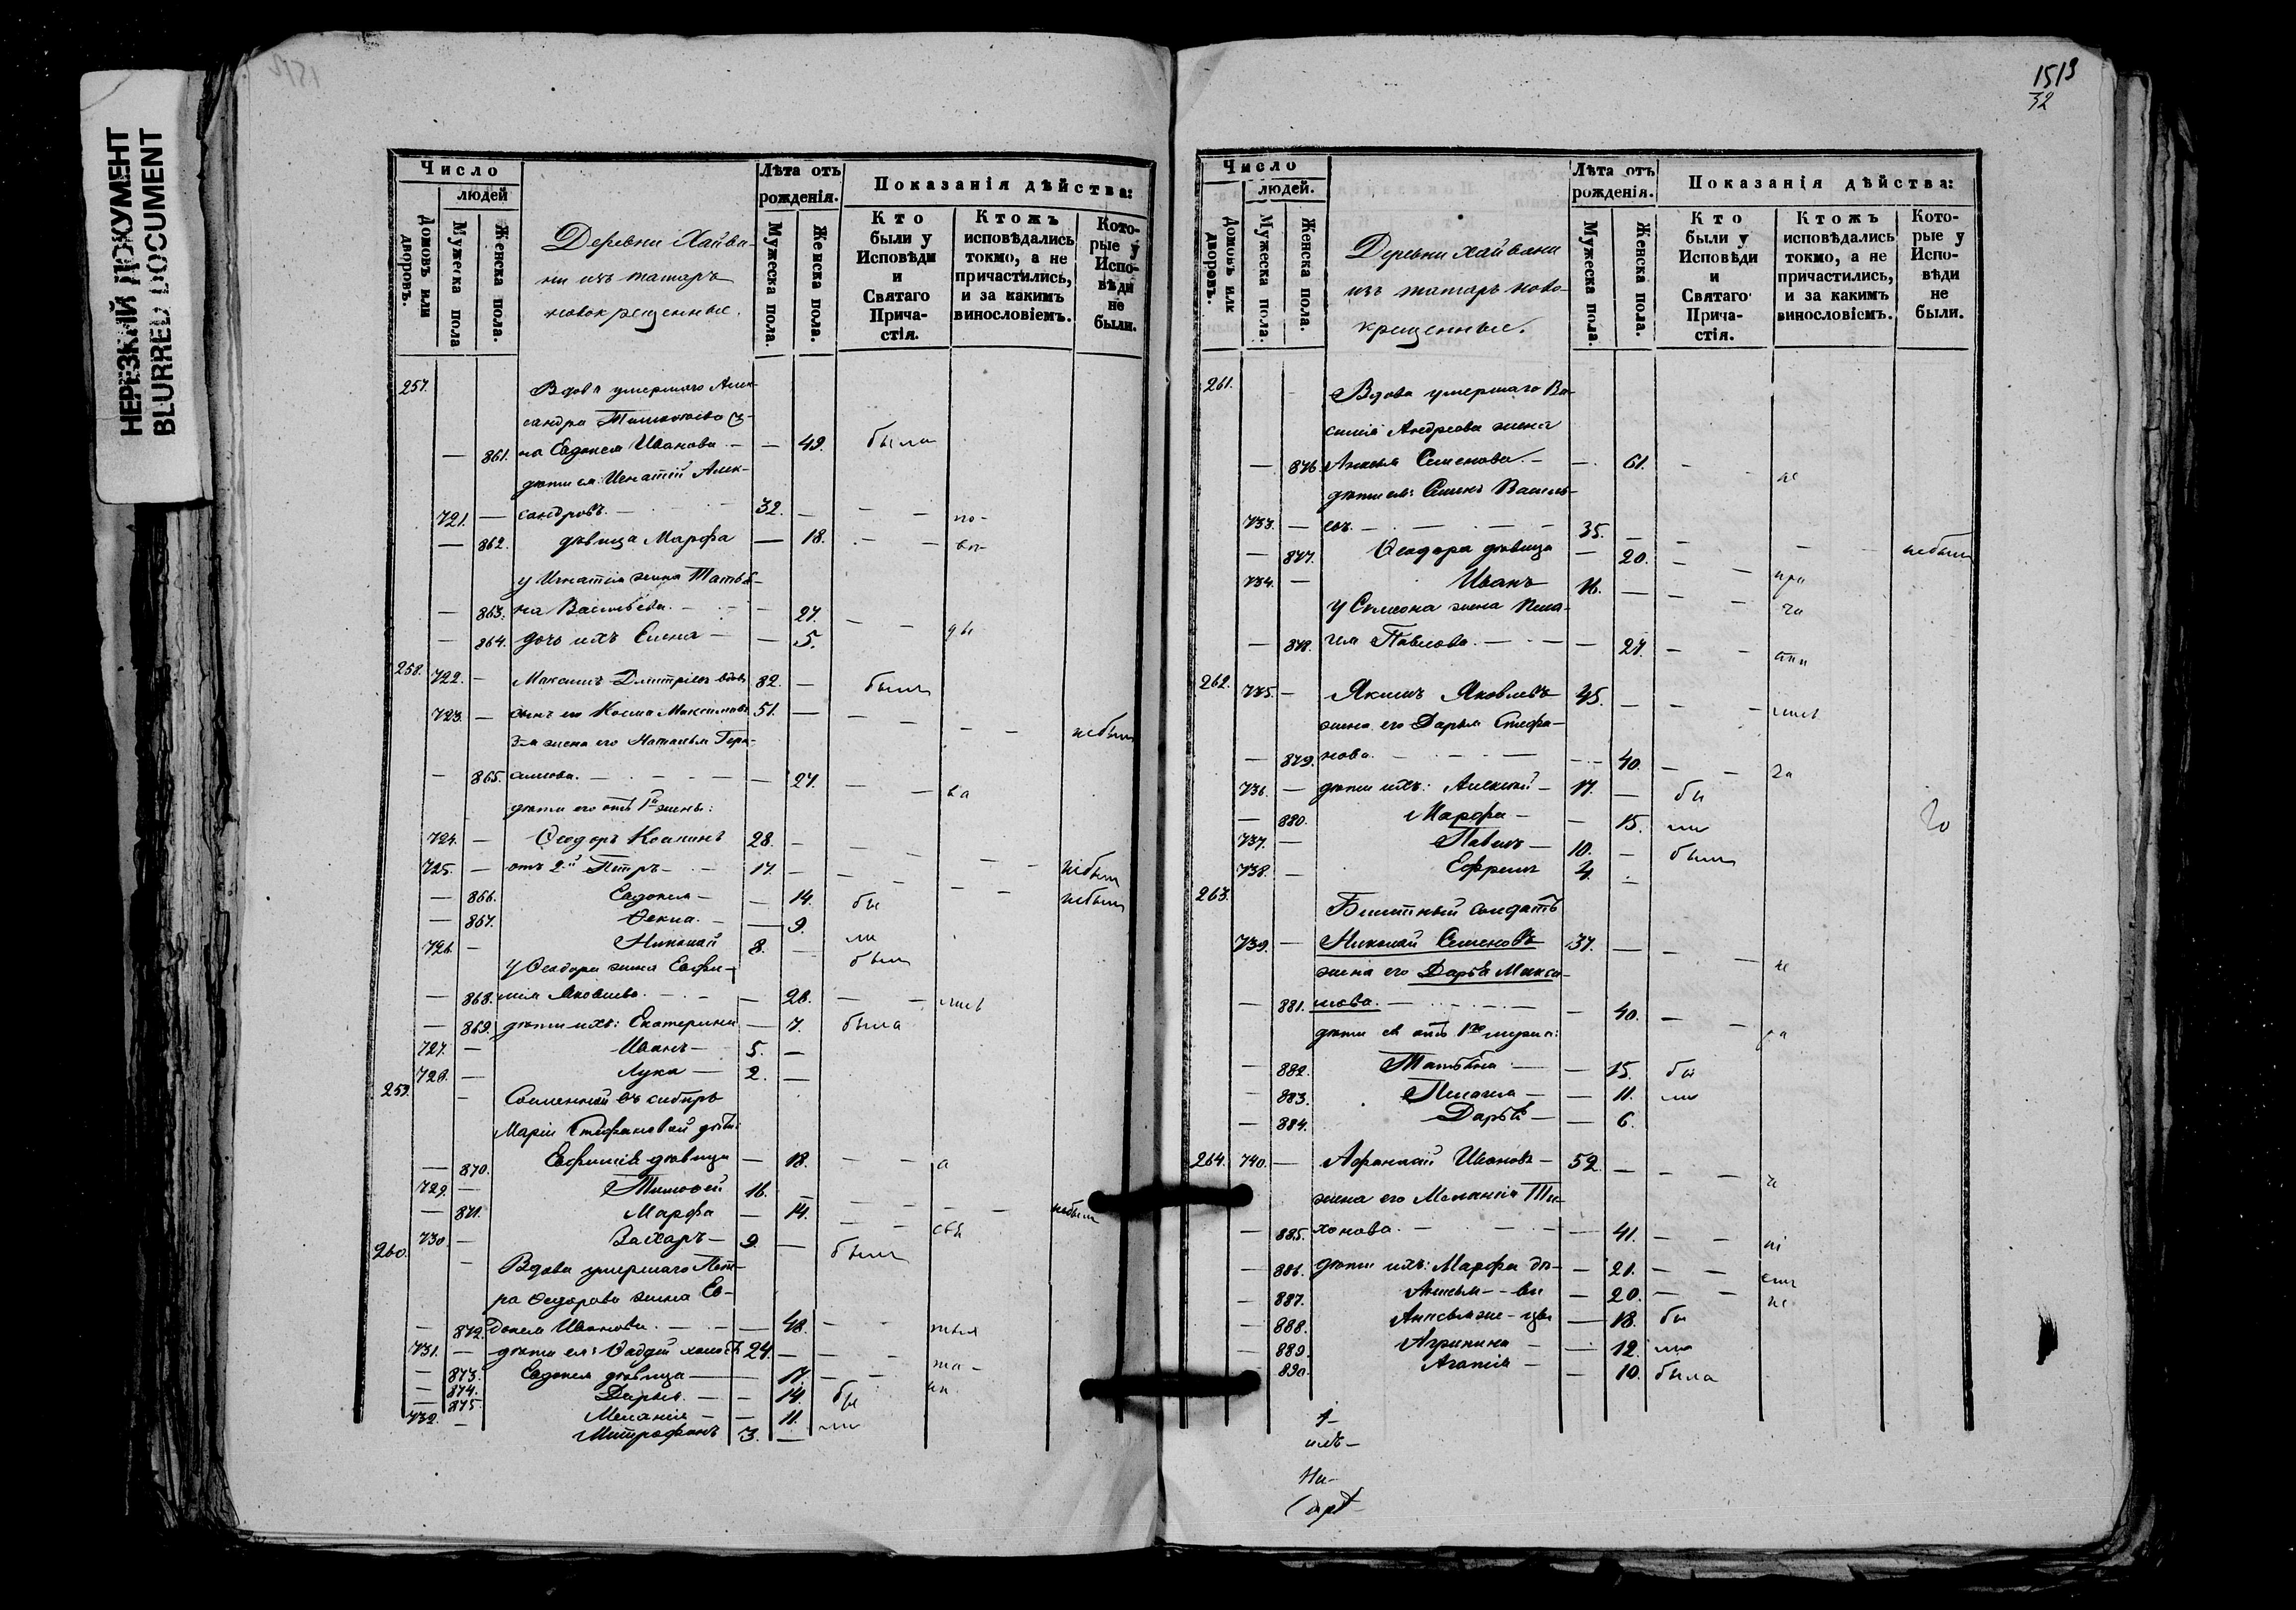 НЕРЕЗКИЙ ДОКУМЕНТ
BLURRED DOCUMENT
Число
людей
Домовъ или дворовъ.
Мужеска пола
Женска пола.
Деревни Хайва-
ни изъ татаръ
новокрещенные.
Лѣта отъ рожденія.
Мужеска пола.
Женска пола.
Показанія дѣйства:
Кто были у Исповѣди и Святаго Прича-стія.
Ктожъ исповѣдались токмо, а не причастились, и за какимъ винословіемъ.
Кото-рые у Испо-вѣди не были.
257. Вдова умершаго Алек-
сандра
861. на Евдокія Иванова — — 49. была
дѣти ея: Игнатій Алек-
721. — сандровъ. — 32. —
— 862. дѣвица Марфа — 18.
у Игнатія жена Татья-
— 863. на Васильева. — 27.
— 864. дочь ихъ Елена — — 5.
258. 722. — Максимъ Дмитріевъ вдовъ 82. — былъ
723. — сынъ его Косма Максимовъ 51. — небылъ
3-я жена его Наталья Гера-
— 865. симова. — — 27.
дѣти его отъ 1й жены:
724. — Ѳеодоръ Косминъ 28. — небылъ
725. — отъ 2й Петръ — 17. — небылъ
— 866. Евдокія — — 14. бы
— 867. Ѳекла. — — 9. ли
726. — Николай 8. — былъ
у Ѳеодора жена Евфи-
— 868. мія Яковлева. — — 28.
— 869. дѣти ихъ: Екатерина — 7. была
727. — Иванъ — 5. —
728. — Лука — 2. —
259. Сосланной въ сибирь
Маріи Стефановой дѣти:
— 870. Евфимія дѣвица — 18.
729. — Тимоѳей 16. — небылъ
— 871. Марфа — 14.
730. — Захаръ — 9. — былъ
260. Вдова умершаго Пет-
ра Ѳедорова жена Ев-
— 872. докія Иванова. — — 48.
731. — дѣти ея: Ѳаддей холостъ 24. —
— 873. Евдокія дѣвица — 17.
— 874. Дарья. — — 14. бы
— 875. Меланія — — 11. ли
732. — Митрофанъ 3. —
1513
32
Число
людей.
Домовъ или дворовъ.
Мужеска пола.
Женска пола.
Деревни Хайвани
изъ татаръ ново-
крещенные.
Лѣта отъ рожденія.
Мужеска пола.
Женска пола.
Показанія дѣйства:
Кто были у Исповѣди и Святаго Прича-стія.
Ктожъ исповѣдались токмо, а не причастились, и за какимъ винословіемъ.
Кото-рые у Испо-вѣди не были.
261. Вдова умершаго Ва-
силія Андреева жена
— 876. Семенова. — — 61. не
дѣти ея: Васильев-
733. — 35. — небылъ
— 877. Ѳеодора дѣвица — 20. при
734. — Иванъ 16. — ча
у Симеона жена Пела-
— 878. гея Павлова. — — 27.
262. 735. — Якимъ Яковлевъ 45. —
жена его Дарья Стефа-
— 879. нова. — — 40.
736. — дѣти ихъ: Алексѣй — 17. — бы
— 880. Марфа — — 15. ли
737. — Павелъ — 10. — былъ
738. — Ефремъ 4. —
263. Билетный солдатъ
739. — Николай Семеновъ 37. — не
жена его Дарья Макси-
— 881. мова. — — 40.
дѣти ея отъ 1го мужа:
— 882. Татьяна — — 15. бы
— 883. Пелагея — — 11. ли
— 884. Дарья — — 6.
264. 740. — Афанасій Ивановъ — 52. —
жена его Меланія Ти-
— 885. хонова. — — 41.
— 886. дѣти ихъ: Марфа дѣ- — 21.
— 887. ви — 20. не
— 888. цы — 18. бы
— 889. Агрипина — 12. ли
890. Агапія — — 10. была